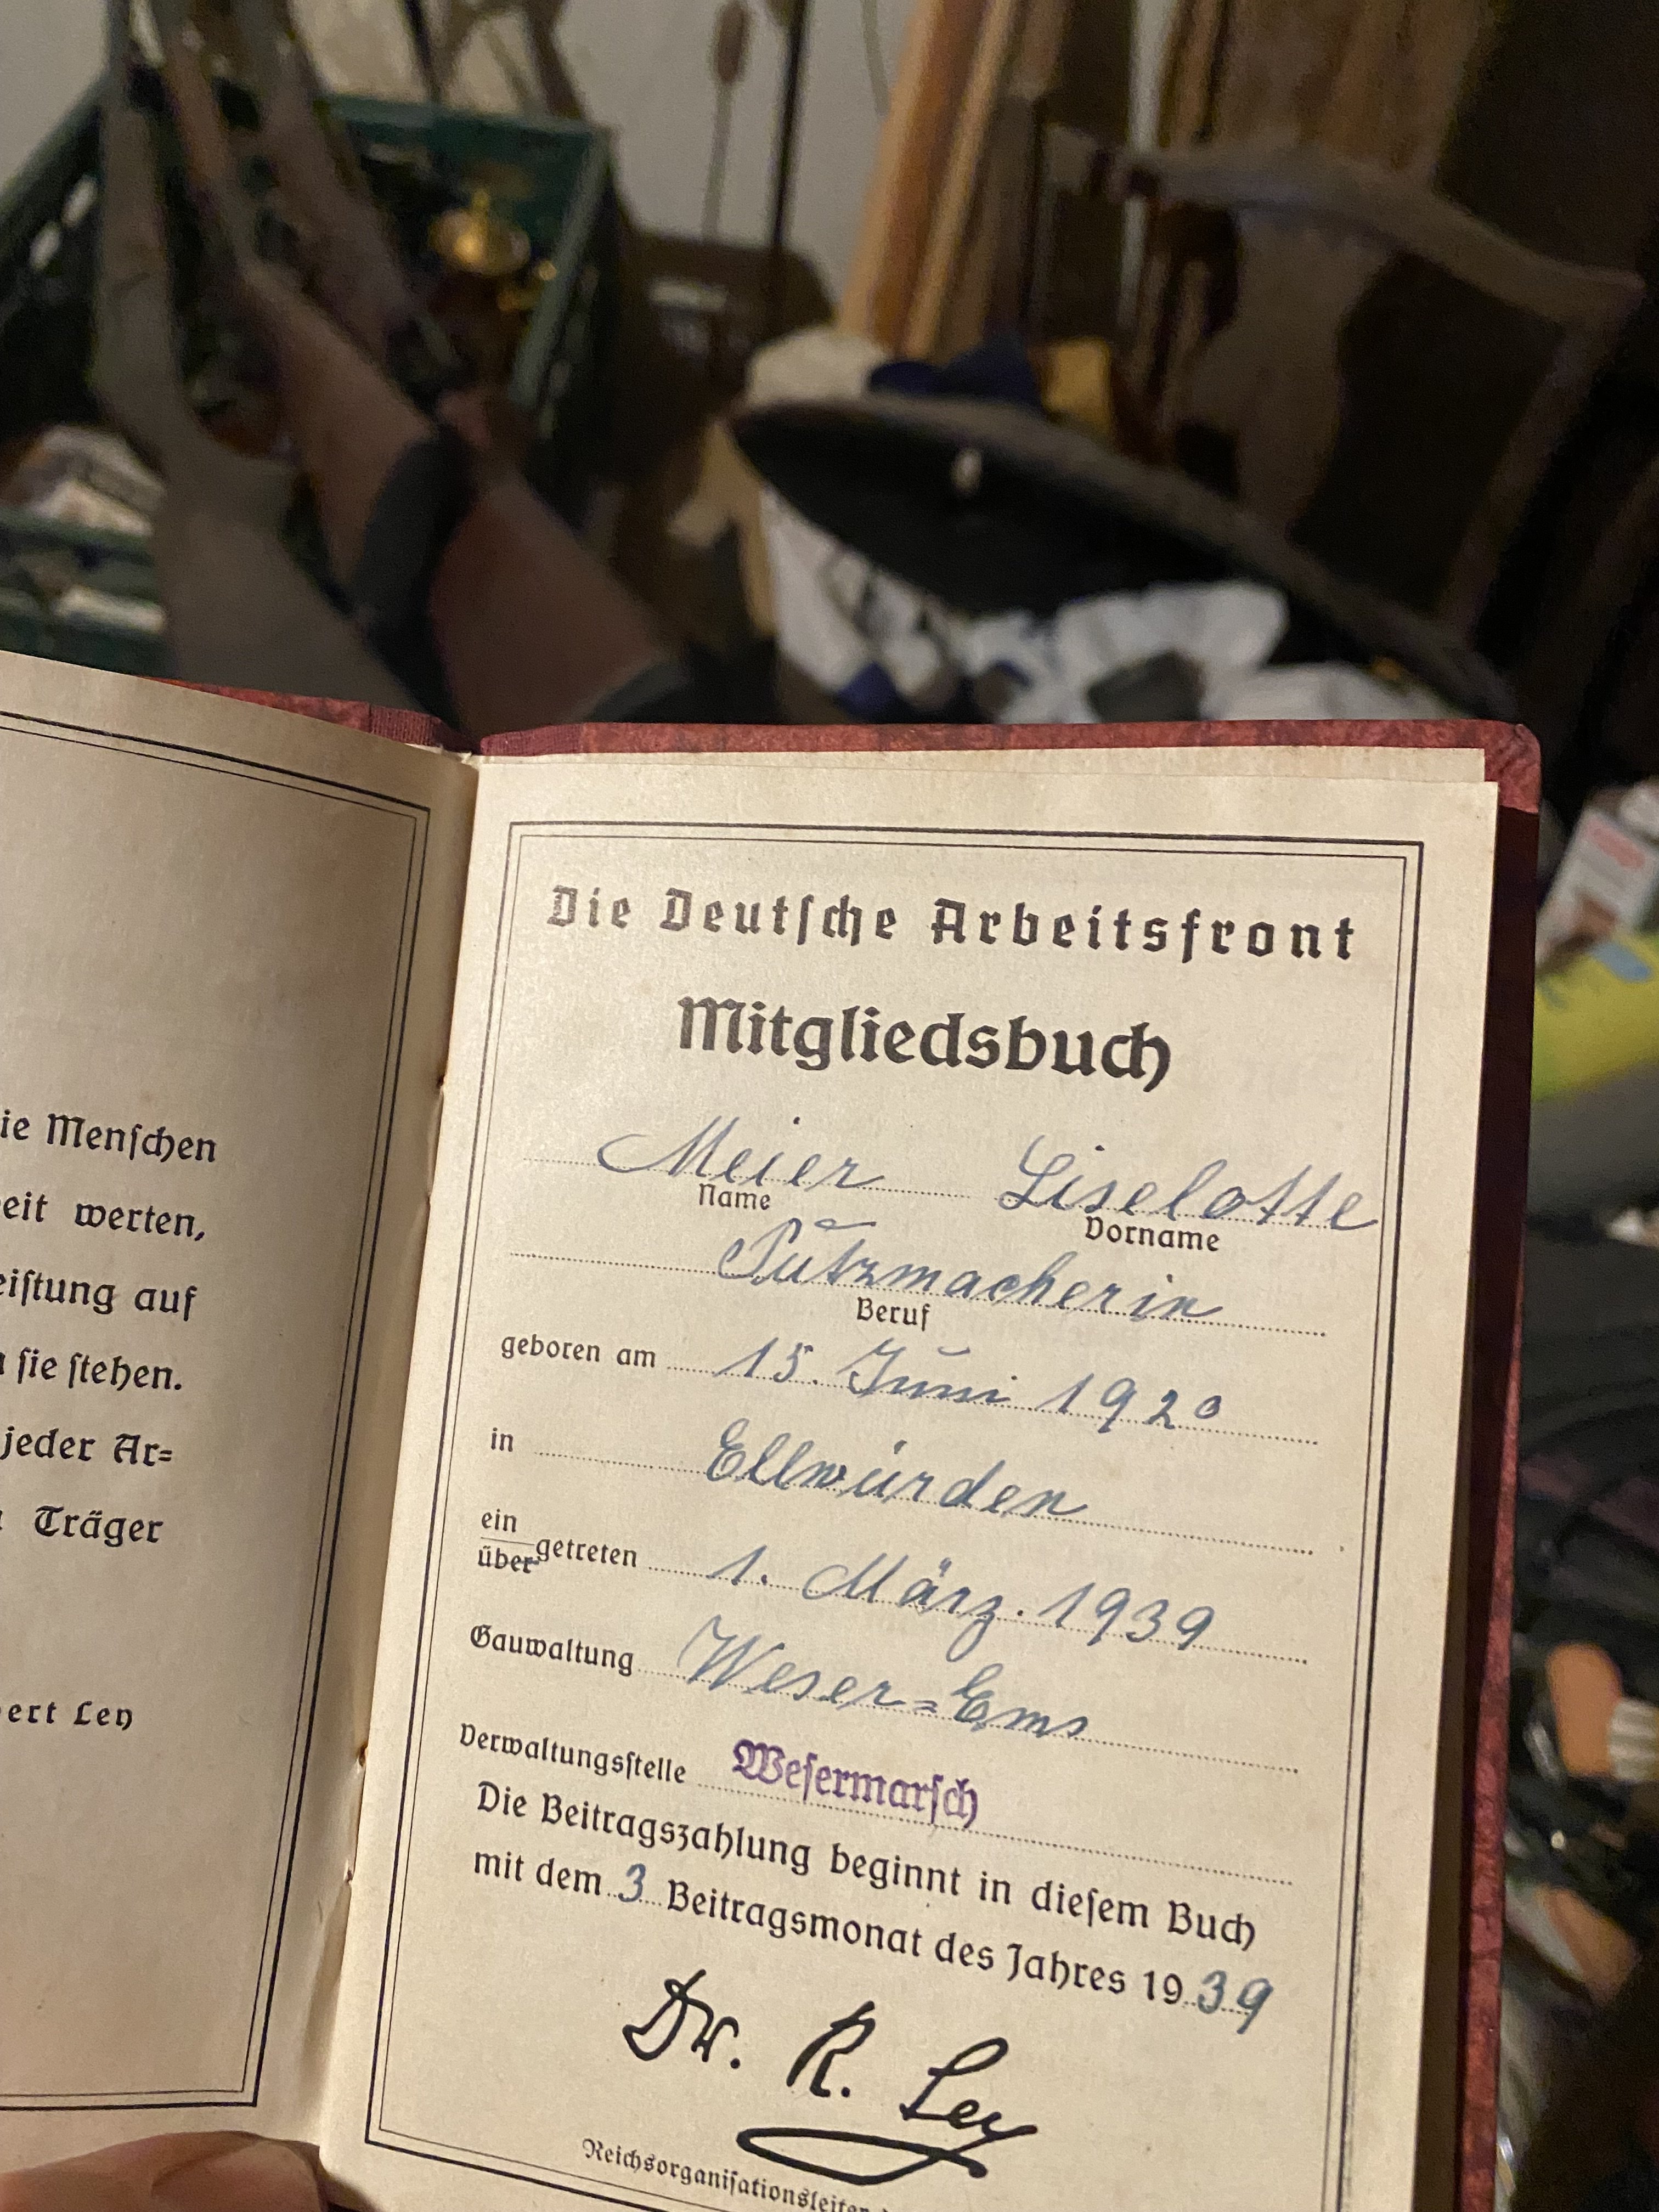 ie Menschen
eit werten,
eistung auf
sie stehen.
jeder Ar=
Träger
ert Ley
Die Deutsche Arbeitsfront
Mitgliedsbuch
Meier Liselotte
Name Vorname
Putzmacherin
Beruf
geboren am 15. Juni 1920
in Ellwürden
ein
über getreten 1. März. 1939
Gauwaltung Weser=Ems
Verwaltungsstelle Wesermarsch
Die Beitragszahlung beginnt in diesem Buch
mit dem 3 Beitragsmonat des Jahres 1939
Dr. R. Ley
Reichsorganisationsleiter